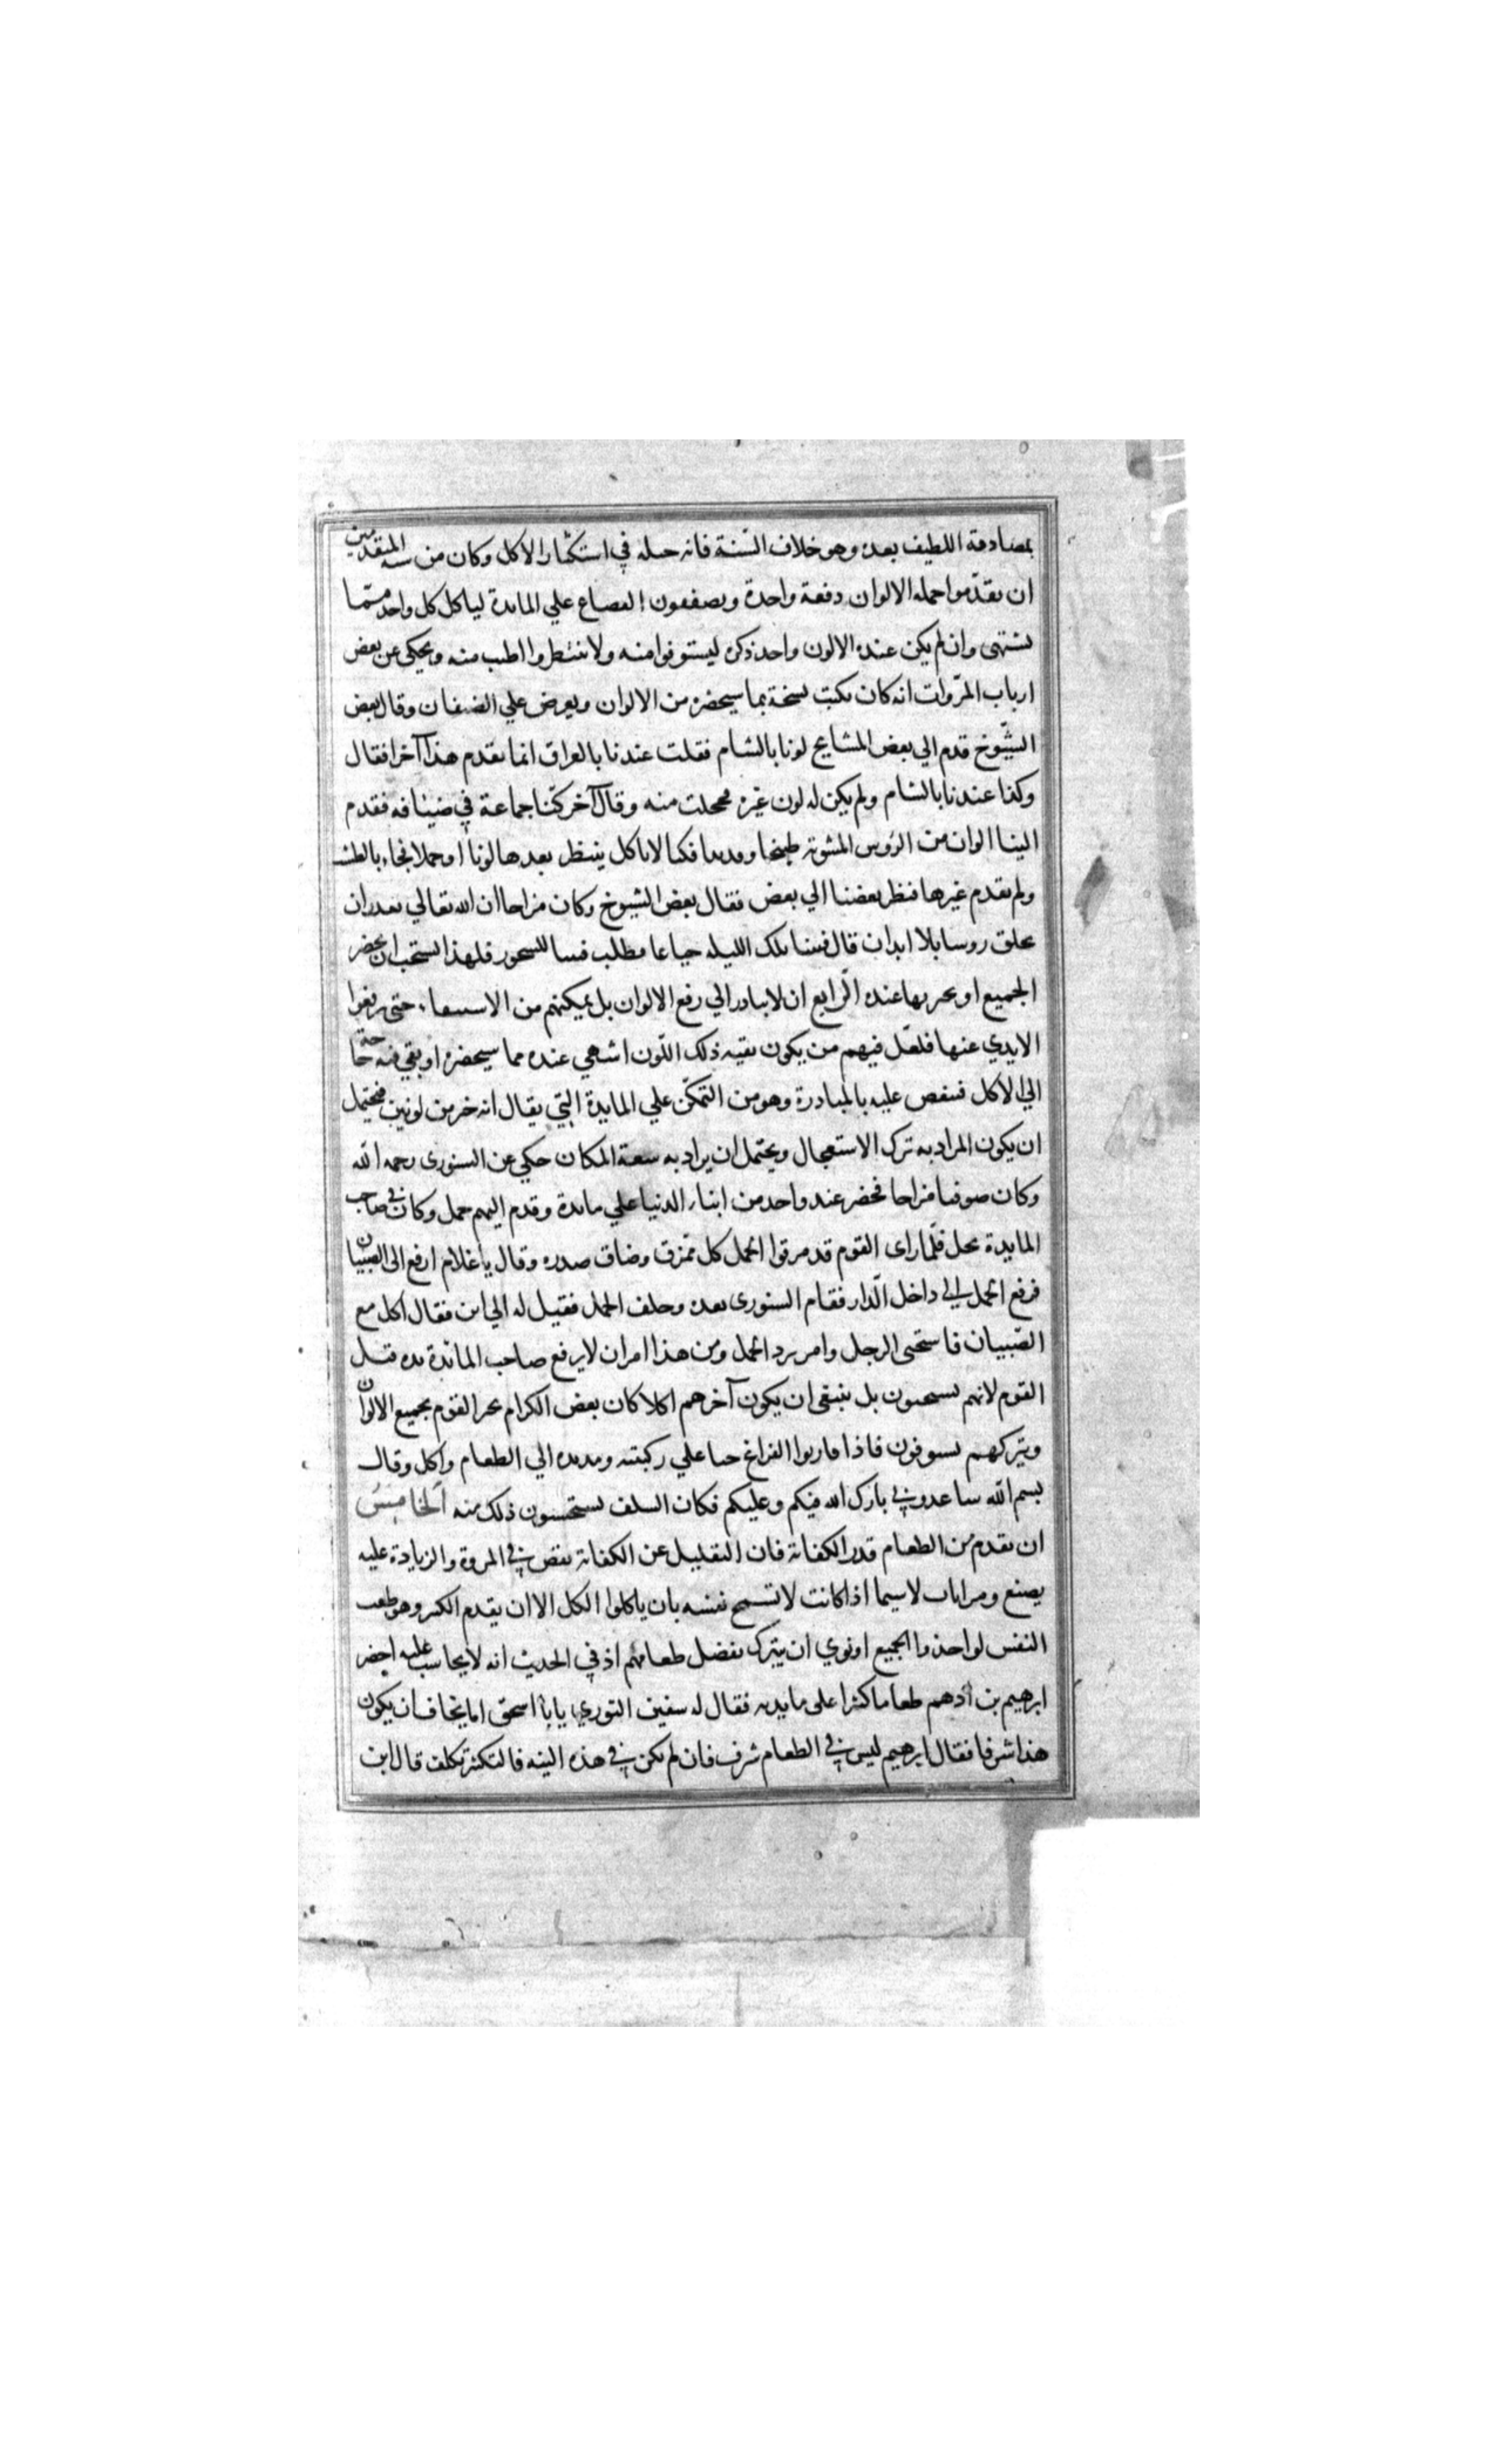 بمصادفة اللطيف بعده وهو خلاف السّنة فانه حيله في استكثار الاكل وكان من سنه المتقدمين
ان يقدّموا جمله الالوان دفعة واحدة ويصففون القصاع علي المايدة لياكل كل واحد ممّا
يشتهى وان لم يكن عنده الالون واحد ذكره ليستوفوا منه ولا ينتظروا اطيب منه ويحكى عن بعض
ارباب المرّوات انه كان يكتب نسخة بما سيحضره من الالوان ويعرض علي الضيفان وقال بعض
الشّيوخ قدم الي بعض المشايخ لونا بالشام فقلت عندنا بالعراق انما يقدم هذا آخرا فقال
وكذا عندنا بالشام ولم يكن له لون غيره فخجلت منه وقال آخر كنّا جماعة في ضيافه فقدم
الينا الوان من الرّوس المشويه طبيخا وقديدا فكنا لا ناكل ننتظر بعدها لونا او حملا فجاء بالطشت
ولم يقدم غيرها فنظر بعضنا الي بعض فقال بعض الشيوخ وكان مزاحا ان الله تعالي يقدر ان
يخلق روسا بلا ابدان قال فبتنا تلك الليله جياعا نطلب فتيتا للسحور فلهذا يستحب ان يحضر
الجميع او يخبر بما عنده الرّابع ان لا يبادر الي رفع الالوان بل يمكنهم من الاستيفاء حتى يرفعوا
الايدي عنها فلعّل فيهم من يكون بقيه ذلك اللّون اشهي عنده مما سيحضره او بقي فيه حاجة
الي الاكل فينغص عليه بالمبادرة وهو من التمكّن علي المايدة التي يقال انه خير من لونين فيحتمل
ان يكون المراد به ترك الاستعجال ويحتمل ان يراد به سعة المكان حكي عن الستورى رحمه الله
وكان صوفيا مزاحا فحضر عند واحد من ابناء الدنيا علي مايدة وقدم اليهم حمل وكان في صاحب
المايدة بخل فلّما راى القوم قد مزقوا الحمل كل ممّزق وضاق صدره وقال يا غلام ارفع الى الصّبيان
فرفع الحمل الي داخل الّدار فقام الستورى بعده وخلف الحمل فقيل له الي اين فقال اكل مع
الصّبيان فاستحيى الرجل وامر برد الحمل ومن هذا امر ان لا يرفع صاحب المائدة يده قبل
القوم لانهم يستحيون بل ينبغى ان يكون آخرهم اكلا كان بعض الكرام يخبر القوم بجميع الالوان
ويتركهم يستوفون فاذا قاربوا الفراغ جثا علي ركبتيه ومد يده الي الطعام واكل وقال
بسم الله ساعدوني بارك الله فيكم وعليكم فكان السلف يستحسنون ذلك منه الخامس
ان يقدم من الطعام قدر الكفاية فان التقليل عن الكفاية نقص في المروة والزيادة عليه
يصنع ومراياة لا سيما اذا كانت لا تسمح نفسه بان ياكلوا الكل الا ان يقدم الكثير وهو طيب
النفس لو اخذوا الجميع او نوي ان يتبرك بفضل طعامهم اذ في الحديث انه لا يحاسب عليه احضر
ابرهيم بن ادهم طعاما كثيرا على مايدته فقال له سفين الثوري يا با اسحق اما يخاف ان يكون
هذا سرفا فقال ابرهيم ليس في الطعام سرف فان لم تكن في هذه النيه فالتكثير تكلف قال ابن